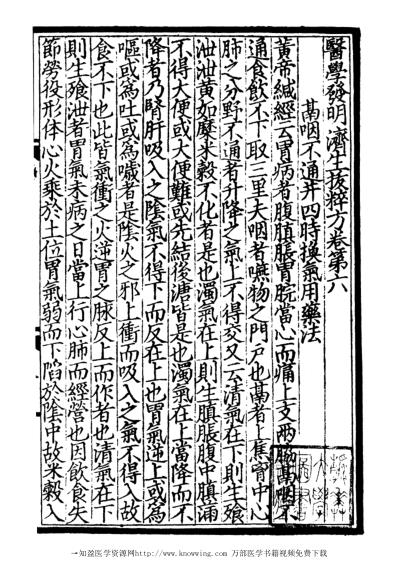 醫學發明 濟生拔粹方卷第六
膈咽不通并四時換氣用藥法
黃帝鍼經云胃病者腹䐜脹胃脘當心而痛上支兩脇膈咽不
通食飲不下取三里夫咽者嚥物之門戶也膈者上焦
心肺之分野不通者升降之氣上不得交又云清氣在下則生飱
泄泄黃如糜米穀不化者是也濁氣在上則生䐜脹腹中䐜滿
不得大便或大便難或先結後溏皆是也濁氣在上當降而不
降者乃腎肝吸入之陰氣不得下而反在上也胃氣逆上或為
嘔或為吐或為噦者是陰火之邪上衝而吸入之氣不得入故
食不下也此皆氣衝之火逆胃之脉反上而作者也清氣在下
則生飱泄者胃氣未病之日當上行心肺而經營也因飲食失
節勞役形体心火乘於土位胃氣弱而下陷於陰中故米穀入
一知盈医学资源网http://www.knowwing.com 万部医学书籍视频免费下载